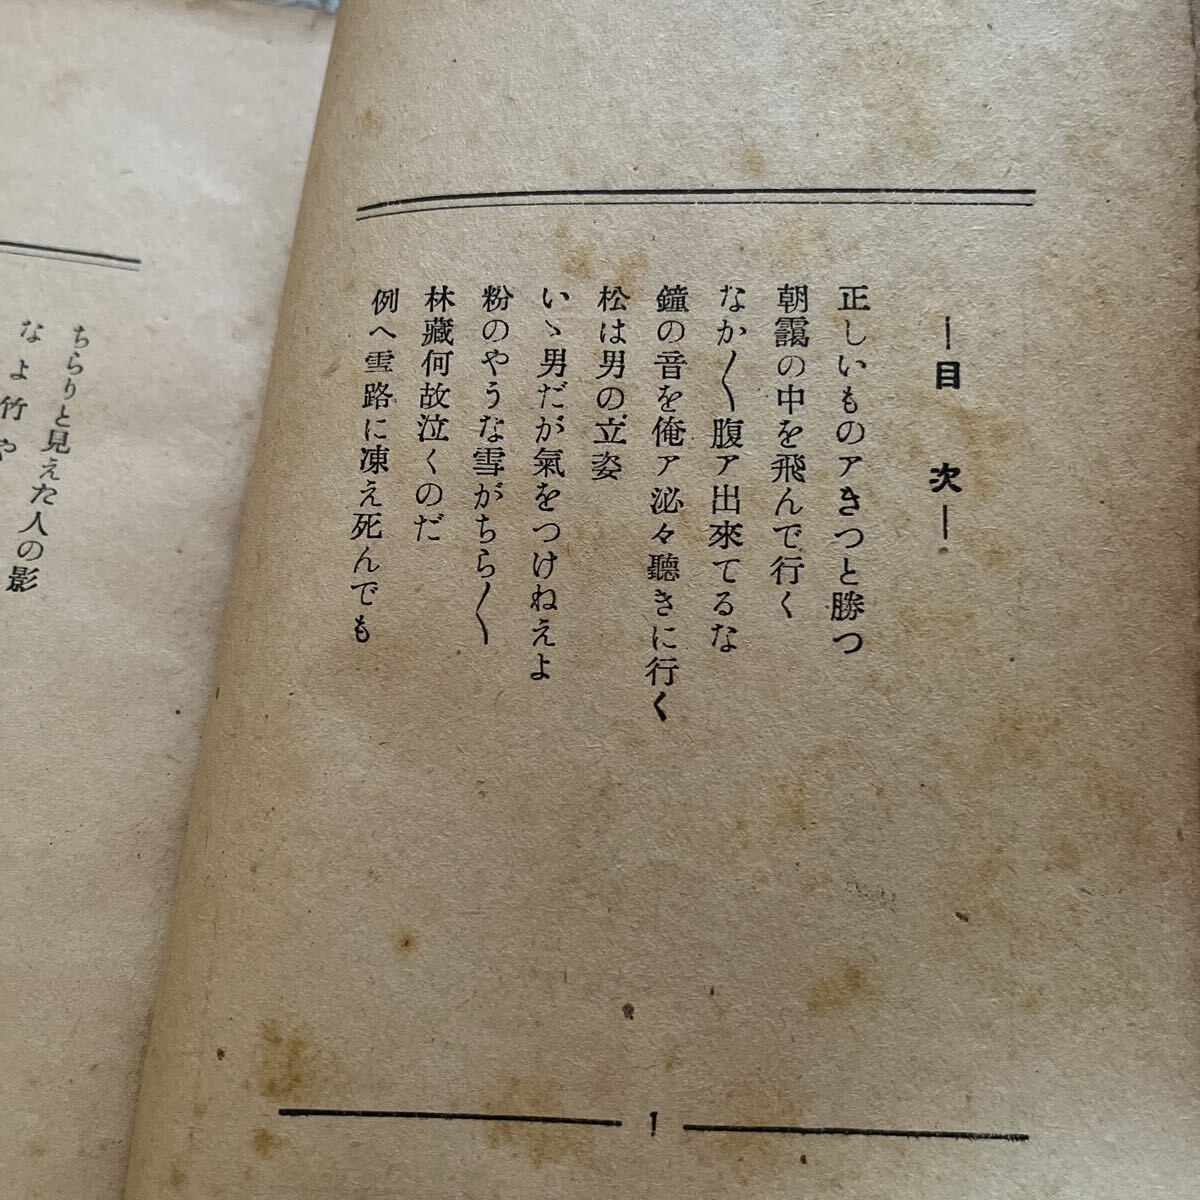 ―目次―
正しいものアきつと勝つ
朝靄の中を飛んで行く
なか〱腹ア出來てるな
鐘の音を俺ア泌々聽きに行く
松は男の立姿
いゝ男だが氣をつけねえよ
粉のやうな雪がちら〱
林藏何故泣くのだ
例へ雪路に凍え死んでも
1
ちらりと見えた人の影
なよ竹や